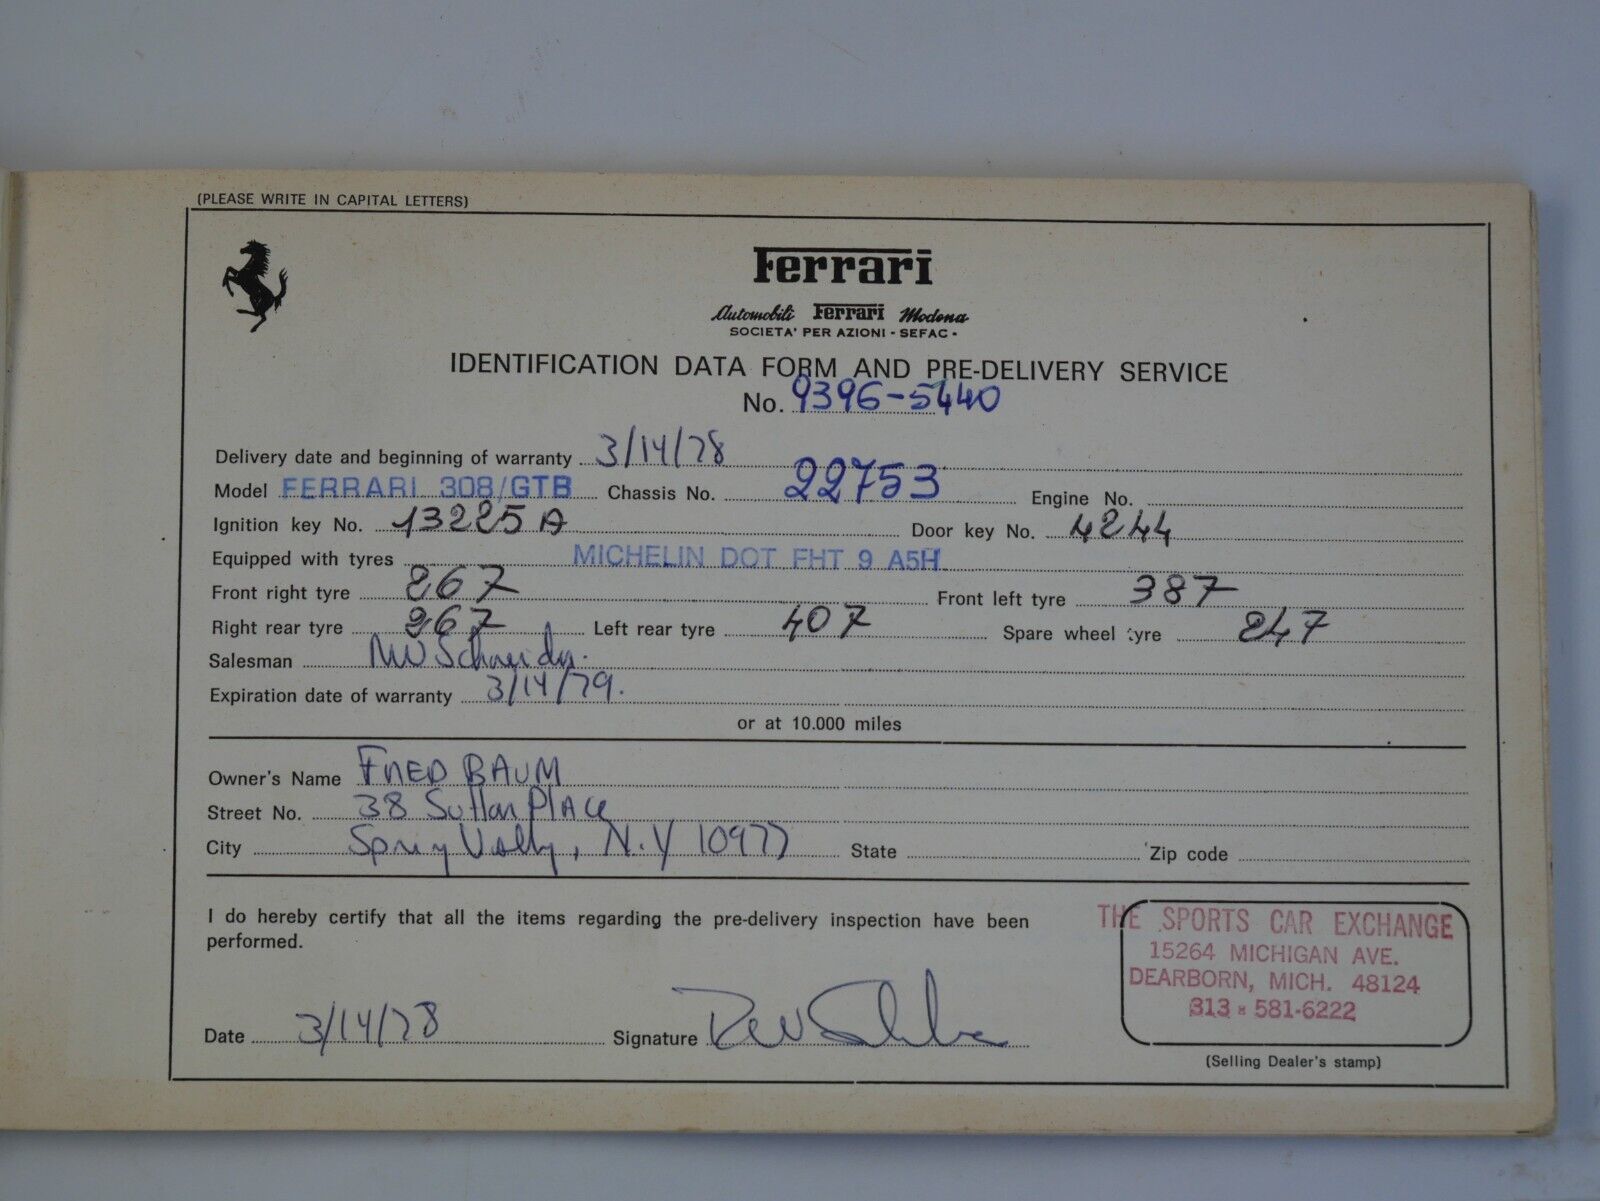 (PLEASE WRITE IN CAPITAL LETTERS)
Ferrari
Automobili Ferrari Modena
SOCIETA' PER AZIONI - SEFAC -
IDENTIFICATION DATA FORM AND PRE-DELIVERY SERVICE
No. 9396-5440
Delivery date and beginning of warranty 3/14/78
Model FERRARI 308/GTB Chassis No. 22753 Engine No.
Ignition key No. 13225 A Door key No. 4244
Equipped with tyres MICHELIN DOT FHT 9 A5H
Front right tyre 267 Front left tyre 387
Right rear tyre 267 Left rear tyre 407 Spare wheel tyre 247
Salesman RW Schneider
Expiration date of warranty 3/14/79.
or at 10.000 miles
Owner's Name FRED BAUM
Street No. 38 Sutton Place
City Spring Valley, N.Y 10977 State Zip code
I do hereby certify that all the items regarding the pre-delivery inspection have been
performed.
THE SPORTS CAR EXCHANGE
15264 MICHIGAN AVE.
DEARBORN, MICH. 48124
313 - 581-6222
Date 3/14/78 Signature
(Selling Dealer's stamp)